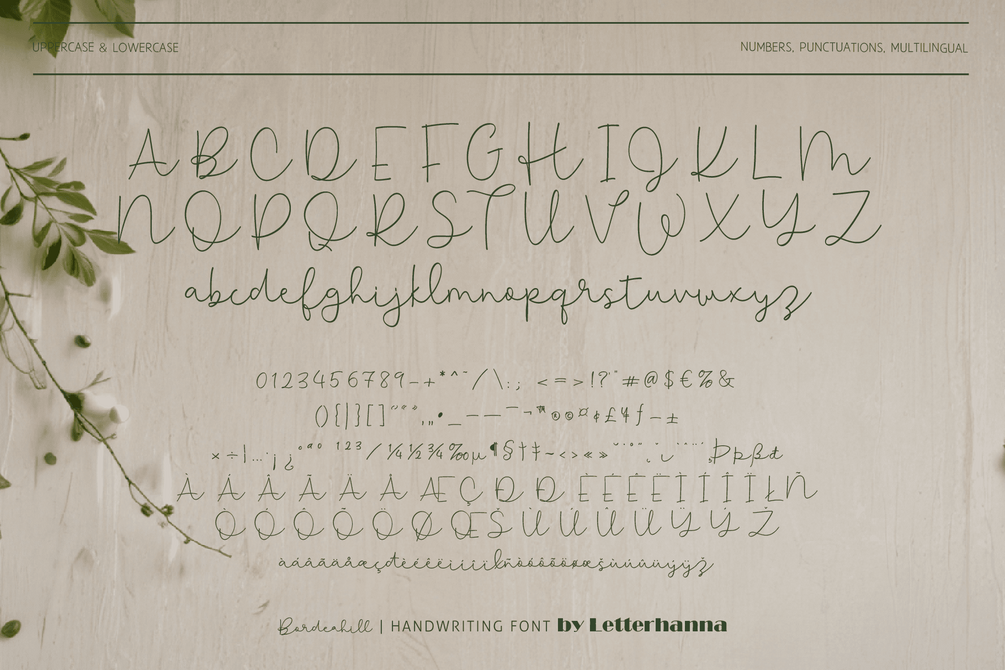 UPPERCASE & LOWERCASE
NUMBERS, PUNCTUATIONS, MULTILINGUAL
A B C D E F G H I J K L M
N O P Q R S T U V W X Y Z
abcdefghijklmnopqrstuvwxyz
0123456789-+*^~/\:; <=>!?"#@$€%&
(){|}[]
¼½¾‰µ¶§†‡~‹›«»
À Á Â Ã Ä Å Æ Ç Ð Đ È É Ê Ë Ì Í Î Ï Ł Ñ
Ò Ó Ô Õ Ö Ø Œ Š Ù Ú Û Ü Ý Ÿ Ž
àáâãäåæçđèéêëìíîïłñòóôõöøœšùúûüýÿž
Bordenhill | HANDWRITING FONT by Letterhanna